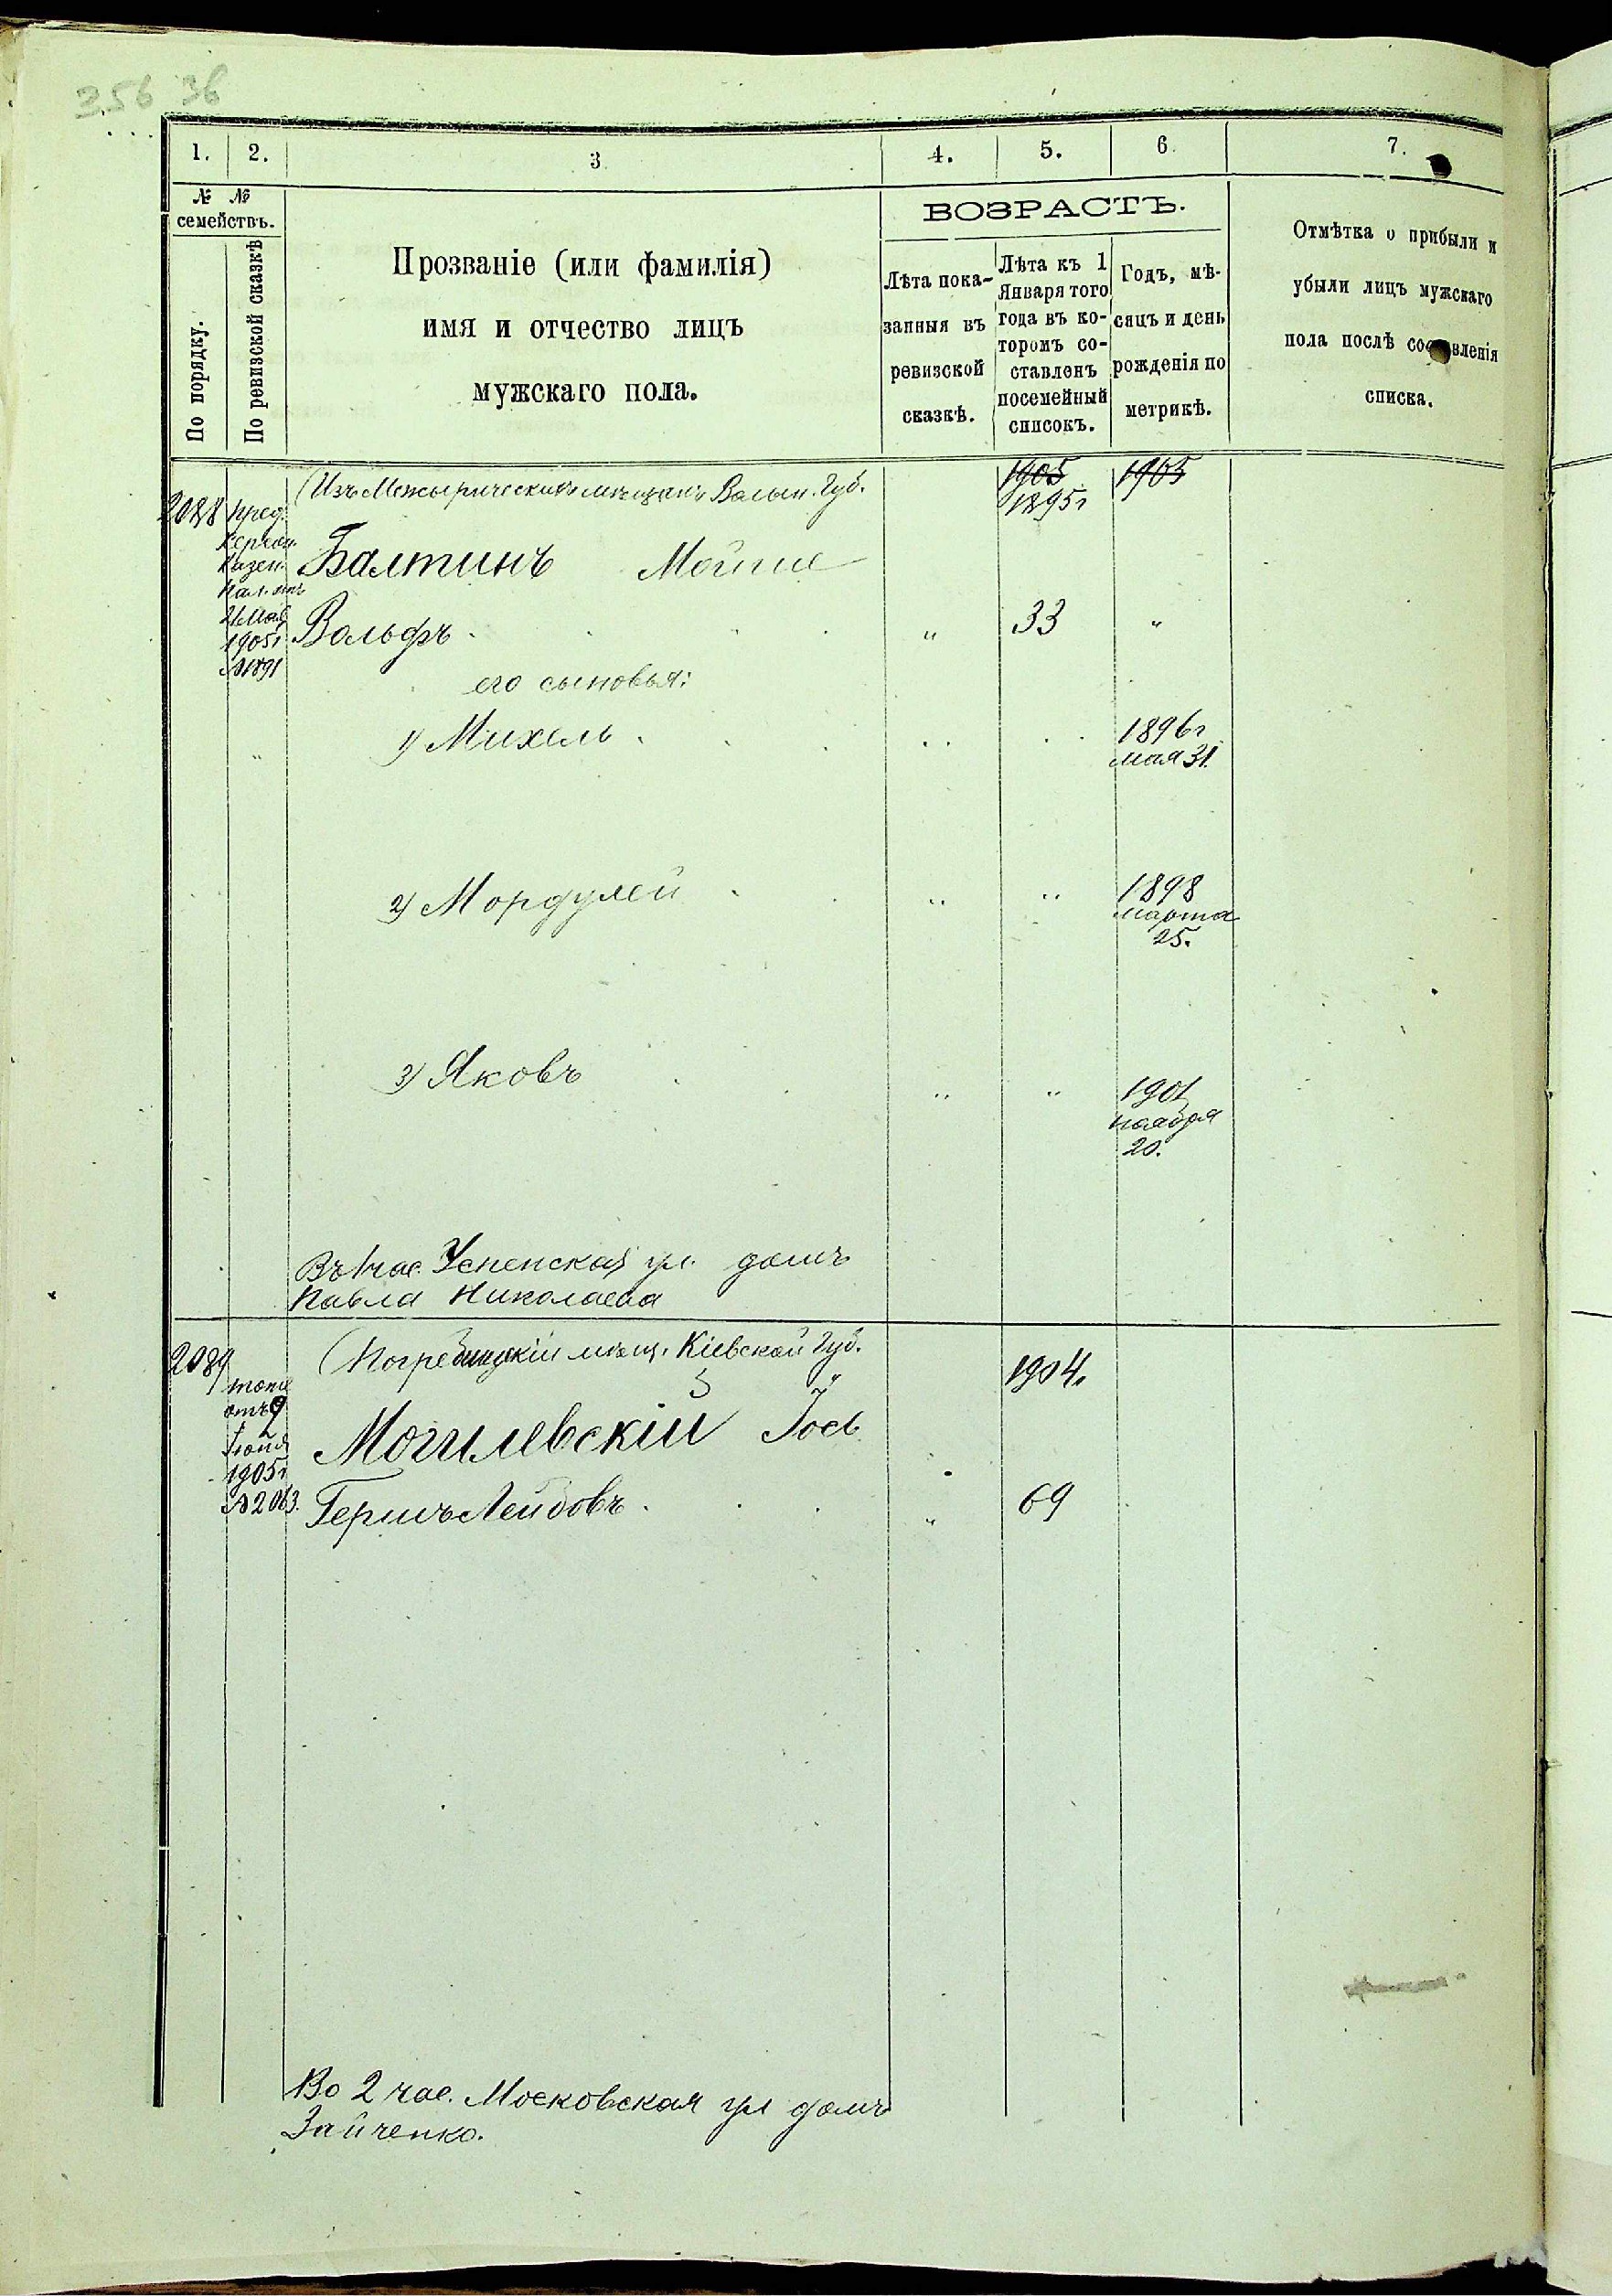 356 36
1. 2. 3 4. 5. 6. 7.
№ №
семействъ.
По порядку.
По ревизской сказкѣ
Прозваніе (или фамилія)
имя и отчество лицъ
мужскаго пола.
ВОЗРАСТЪ.
Лѣта пока-
занныя въ
ревизской
сказкѣ.
Лѣта къ 1
Января того
года въ ко-
торомъ со-
ставленъ
посемейный
списокъ.
Годъ, мѣ-
сяцъ и день
рожденія по
метрикѣ.
Отмѣтка о прибыли и
убыли лицъ мужскаго
пола послѣ составленія
списка.
2088
пред.
Херсон.
Казен.
Пал. отъ
21 Мая
1905 г
№ 1891
(Изъ Межырическихъ мѣщанъ Волын. Губ.
1905 1905
1895 г
Балтинъ Мойше
Вольфъ " 33 "
его сыновья:
1) Михель 1896 г
мая 31.
2) Мордулей " " 1898
марта
25.
3) Яковъ " " 1901
ноября
20.
Въ 1 час. Успенская ул. домъ
Павла Николаева
2089
тоже
отъ 9
Іюня
1905 г
№ 2063.
(Погребищскій мѣщ. Кіевской Губ.
1904 г
Могилевскій Іось
Гершъ Лейбовъ " 69
Во 2 час. Московская ул домъ
Зайченко.